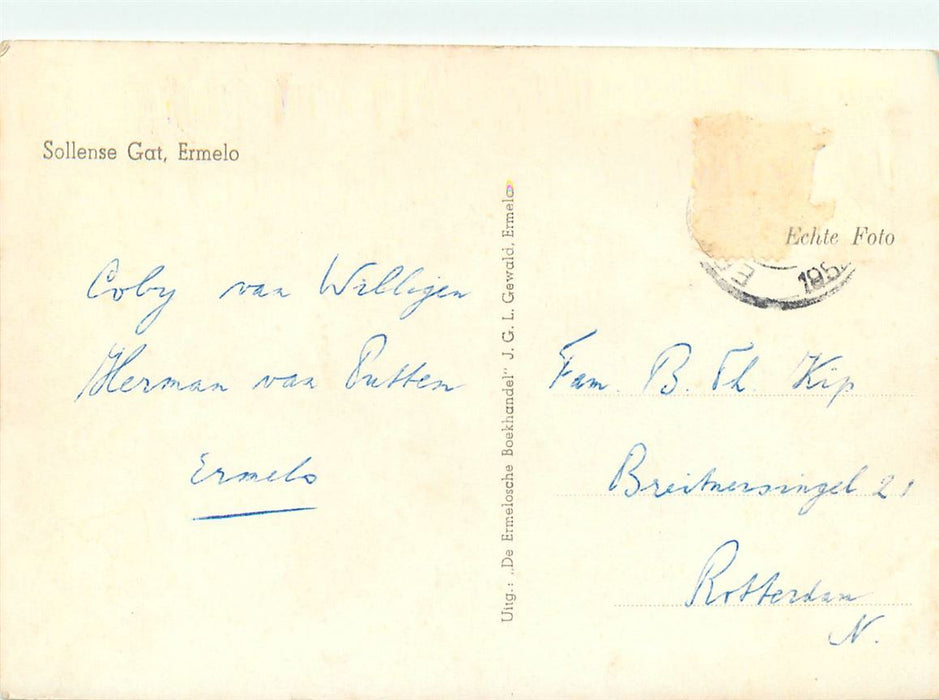 Sollense Gat, Ermelo
Coby van Willigen
Herman van Putten
Ermelo
Uitg.: „De Ermelosche Boekhandel" J. G. L. Gewald, Ermelo
Echte Foto
Fam. B. Th. Kip
Breitnersingel 21
Rotterdam
N.